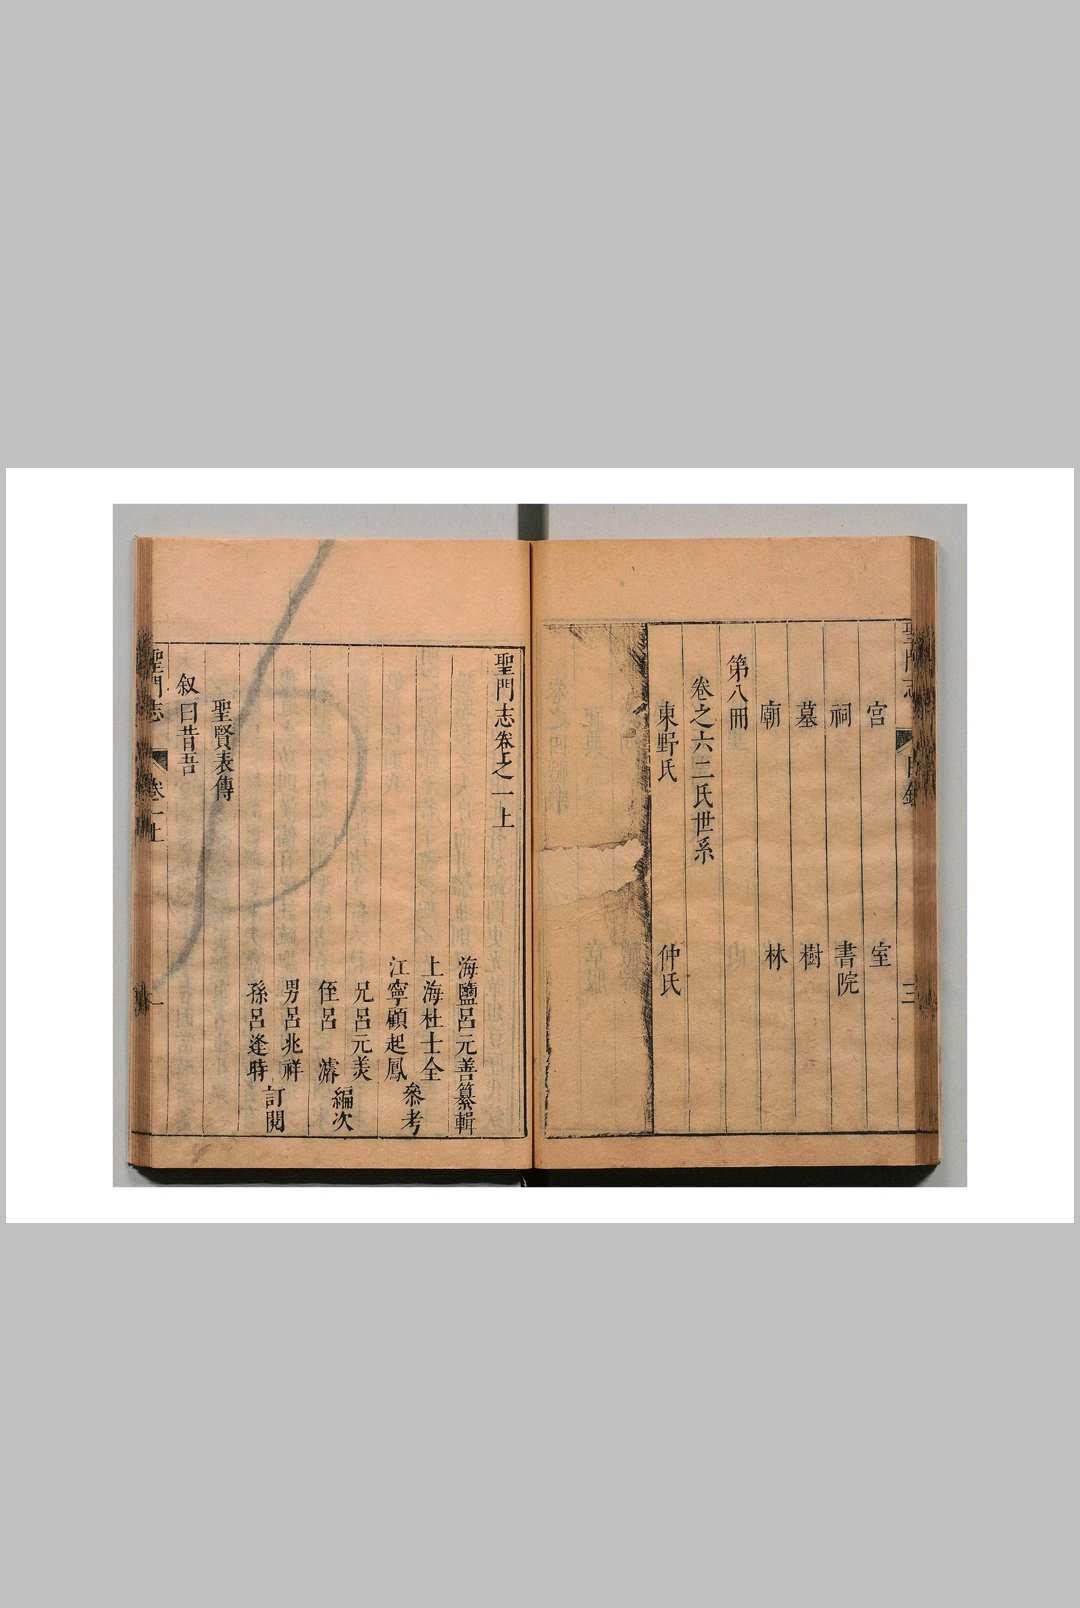 聖門志
目錄
三
宮 室
祠 書院
墓 樹
廟 林
第八冊
卷之六二氏世系
東野氏 仲氏
聖門志卷之一上
海鹽呂元善纂輯
上海杜士全
江寧顧起鳳
參考
兄呂元美
侄呂 濬
編次
男呂兆祥
孫呂逢時
訂閱
聖賢表傳
叙曰昔吾
聖門志
卷一上
一